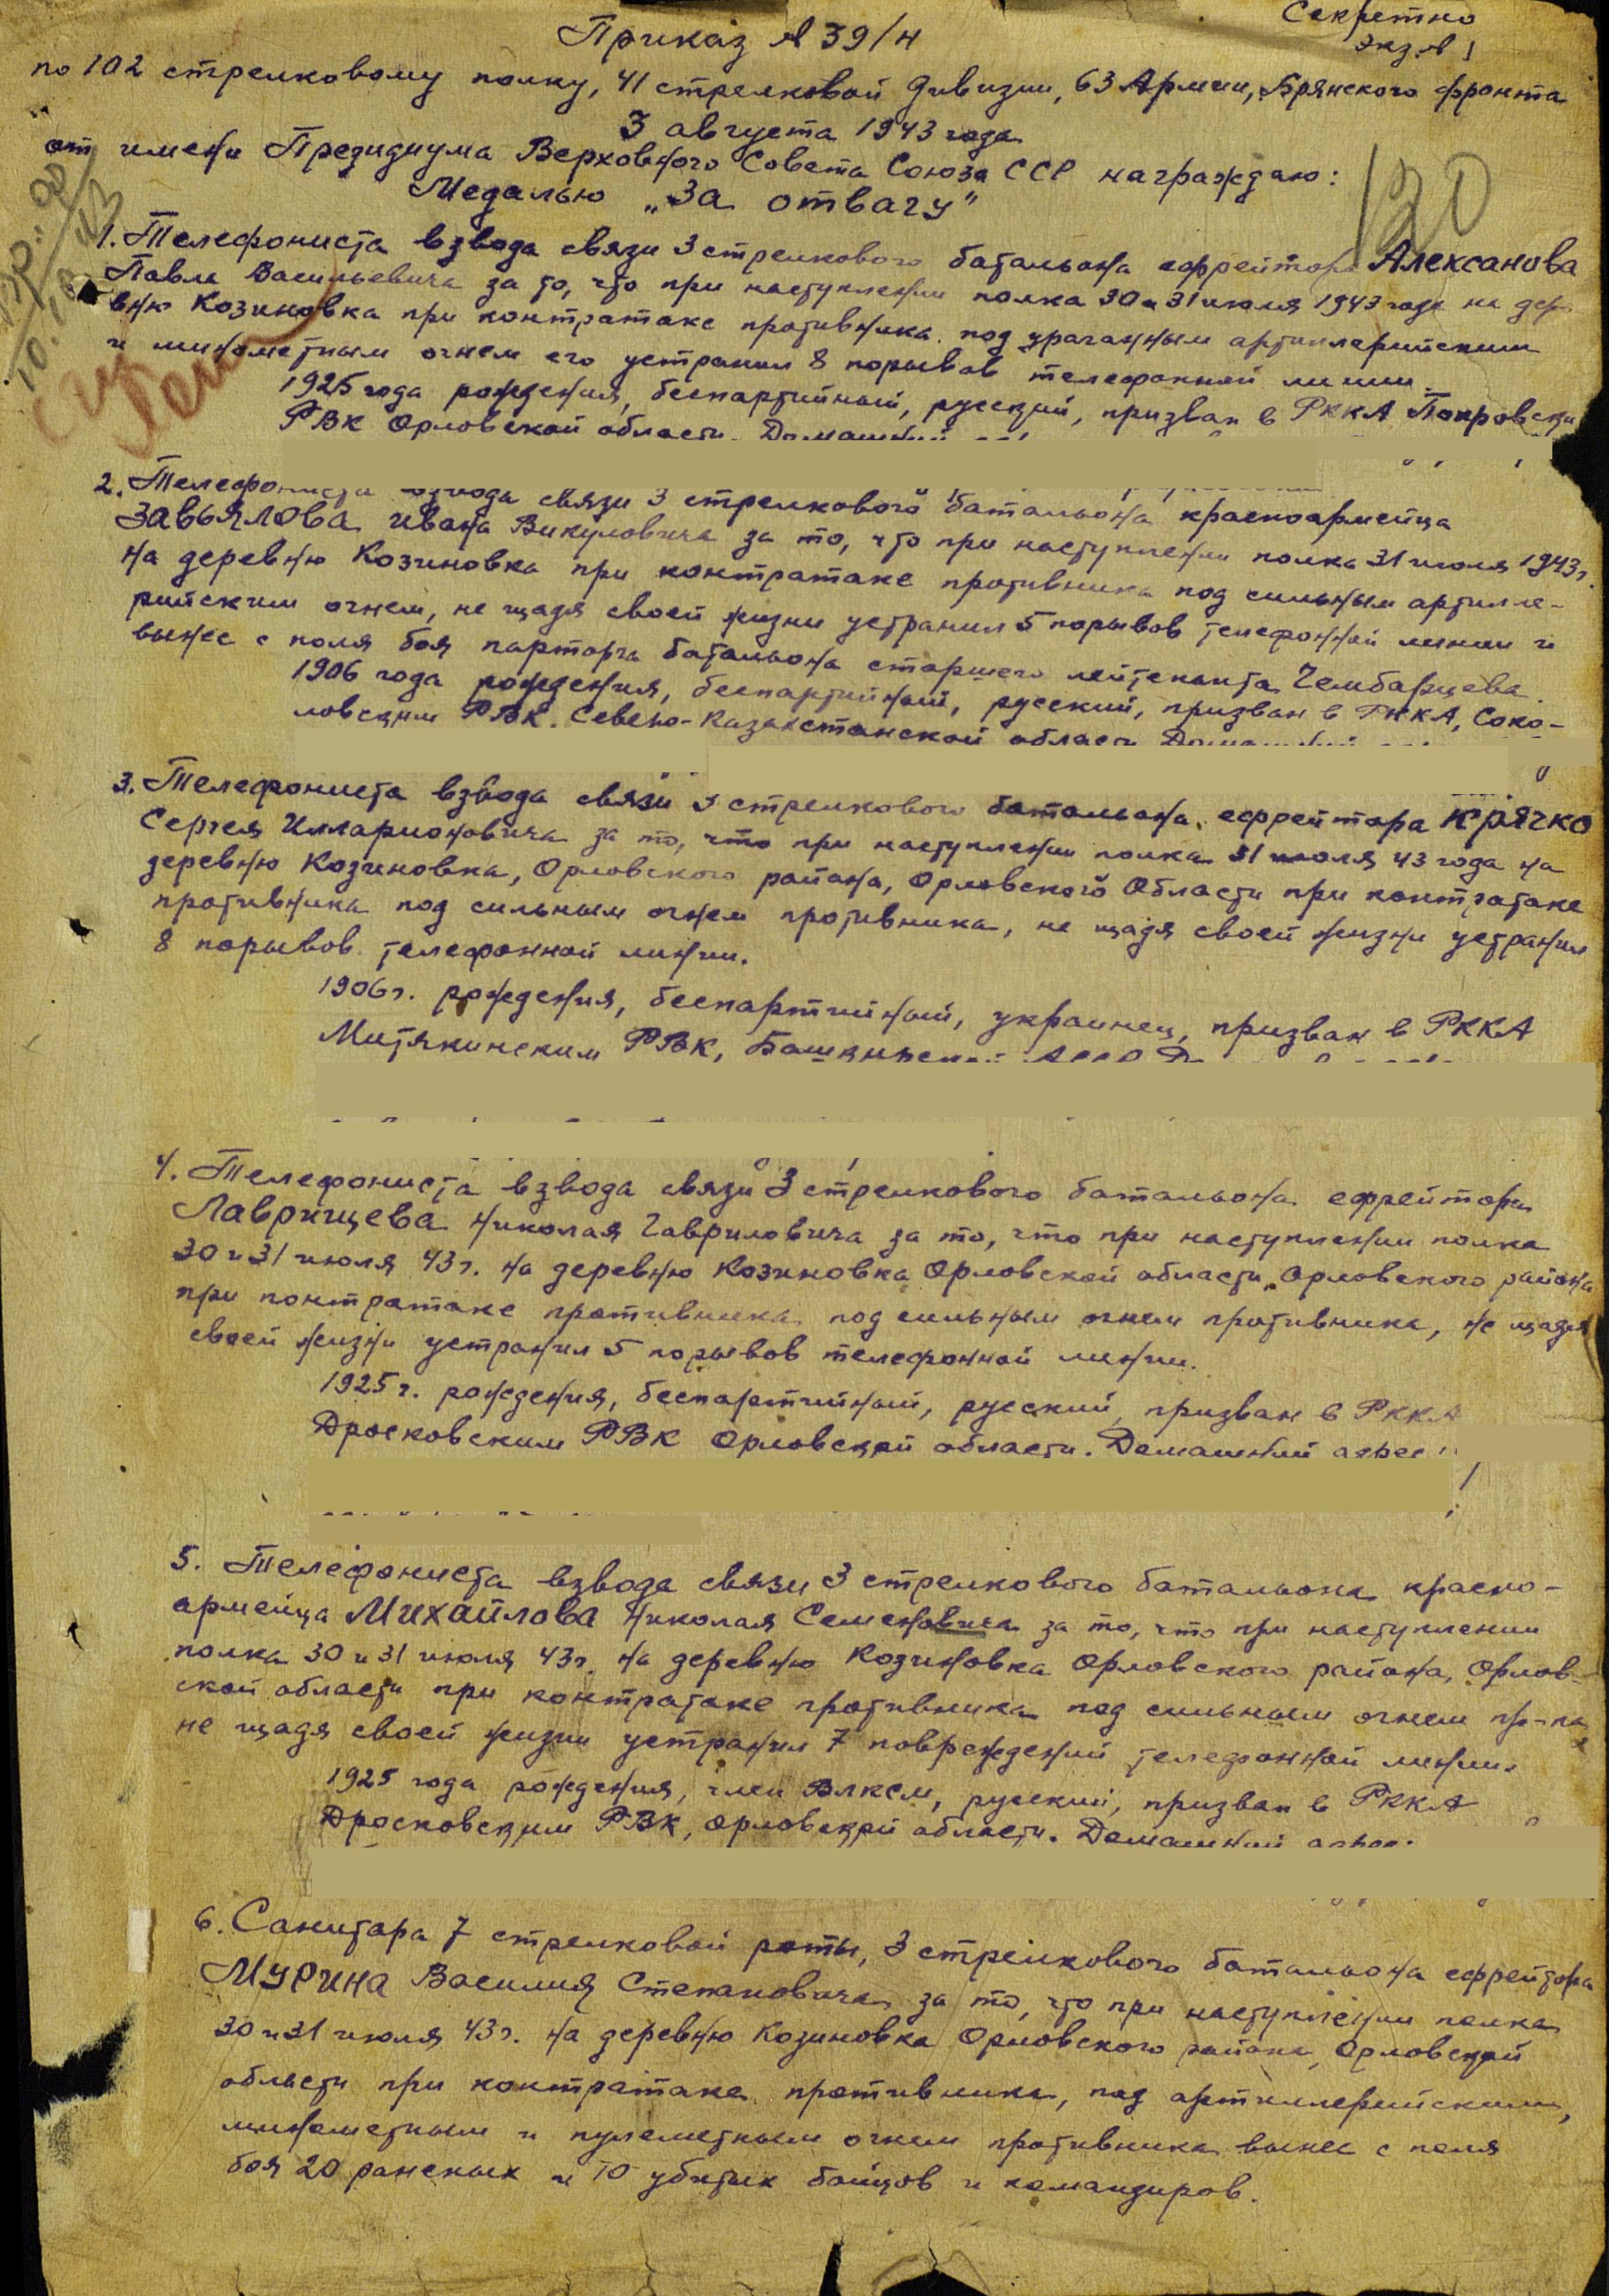 Секретно
экз. № 1
Приказ № 39/н
по 102 стрелковому полку, 41 стрелковой дивизии, 63 Армии, Брянского фронта
3 августа 1943 года
от имени Президиума Верховного Совета Союза ССР награждаю:
Медалью „За отвагу"
1. Телефониста взвода связи 3 стрелкового батальона ефрейтора Алексанова
Павла Васильевича за то, что при наступлении полка 30 и 31 июля 1943 года на дер-
вню Козиновка при контратаке противника под ураганным артиллерийским
и минометным огнем его устранил 8 порывов телефонной линии.
1925 года рождения, беспартийный, русский, призван в РККА Покровским
РВК Орловской области. Домашний
2. Телефониста взвода связи 3 стрелкового батальона красноармейца
Завьялова Ивана Викуловича за то, что при наступлении полка 31 июля 1943 г.
на деревню Козиновка при контратаке противника под сильным артилле-
рийским огнем, не щадя своей жизни устранил 5 порывов телефонной линии и
вынес с поля боя парторга батальона старшего лейтенанта Чембарцева.
1906 года рождения, беспартийный, русский, призван в РККА, Соко-
ловским РВК. Северо-Казахстанской области Домашний
3. Телефониста взвода связи 3 стрелкового батальона ефрейтора Крячко
Сергея Илларионовича за то, что при наступлении полка 31 июля 43 года на
деревню Козиновка, Орловского района, Орловской Области при контратаке
противника под сильным огнем противника, не щадя своей жизни устранил
8 порывов телефонной линии.
1906 г. рождения, беспартийный, украинец, призван в РККА
Митякинским РВК,
4. Телефониста взвода связи 3 стрелкового батальона ефрейтора
Лаврищева Николая Гавриловича за то, что при наступлении полка
30 и 31 июля 43 г. на деревню Козиновка Орловской области, Орловского района
при контратаке противника под сильным огнем противника, не щадя
своей жизни устранил 5 порывов телефонной линии.
1925 г. рождения, беспартийный, русский, призван в РККА
Дросковским РВК Орловской области. Домашний адрес
5. Телефониста взвода связи 3 стрелкового батальона красно-
армейца Михайлова Николая Семеновича за то, что при наступлении
полка 30 и 31 июля 43 г. на деревню Козиновка Орловского района, Орлов-
ской области при контратаке противника под сильным огнем пр-ка
не щадя своей жизни устранил 7 повреждений телефонной линии.
1925 года рождения, член ВЛКСМ, русский, призван в РККА
Дросковским РВК, Орловской области. Домашний адрес.
6. Санитара 7 стрелковой роты, 3 стрелкового батальона ефрейтора
Мурина Василия Степановича за то, что при наступлении полка
30 и 31 июля 43 г. на деревню Козиновка Орловского района, Орловской
области при контратаке противника, под артиллерийским,
минометным и пулеметным огнем противника вынес с поля
боя 20 раненых и 10 убитых бойцов и командиров.